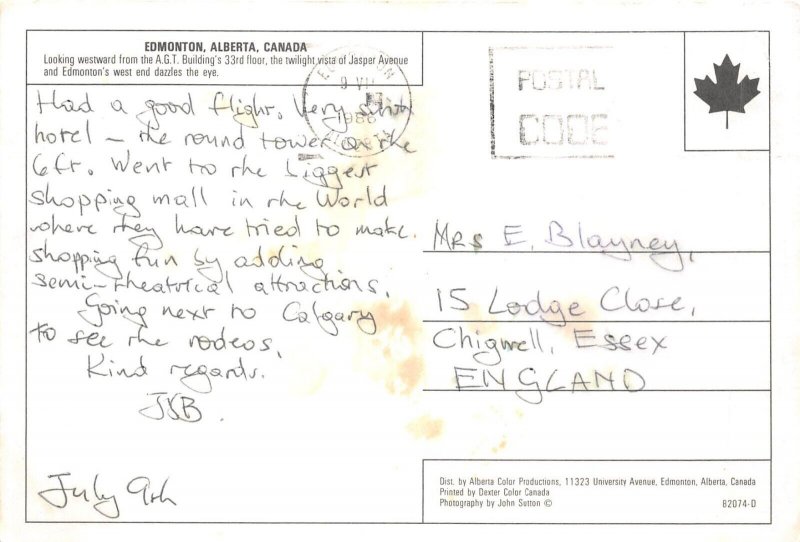 EDMONTON, ALBERTA, CANADA
Looking westward from the A.G.T. Building's 33rd floor, the twilight vista of Jasper Avenue
and Edmonton's west end dazzles the eye.
Had a good flight. Very
hotel – the round tower on the
Went to the biggest
shopping mall in the World
where they have tried to make
shopping fun by adding
semi-theatrical attractions.
Going next to Calgary
to see the rodeos.
Kind regards.
July 9th
9 VII
1986
POSTAL
CODE
Mrs E. Blayney,
15 Lodge Close,
Chigwell, Essex
ENGLAND
Dist. by Alberta Color Productions, 11323 University Avenue, Edmonton, Alberta, Canada
Printed by Dexter Color Canada
Photography by John Sutton ©
82074-D